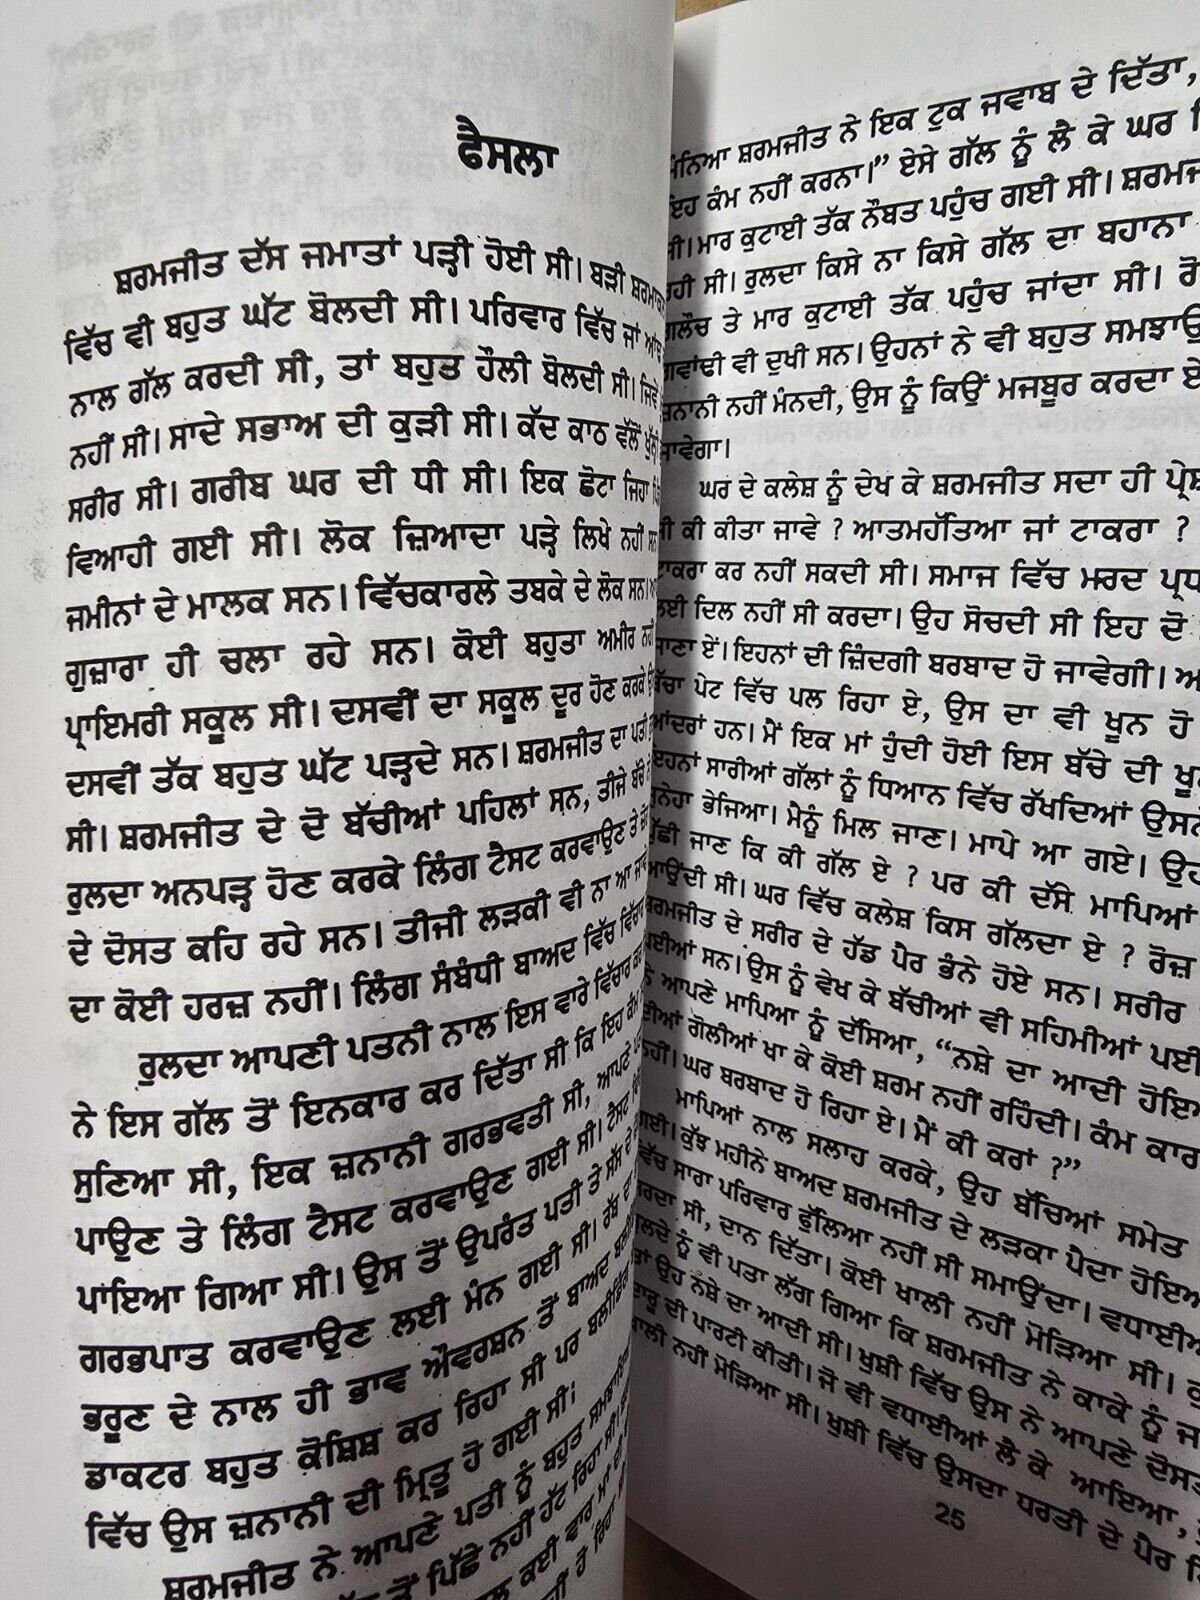 ਫੈਸਲਾ
ਸ਼ਰਮਜੀਤ ਦੱਸ ਜਮਾਤਾਂ ਪੜ੍ਹੀ ਹੋਈ ਸੀ। ਬੜੀ
ਵਿੱਚ ਵੀ ਬਹੁਤ ਘੱਟ ਬੋਲਦੀ ਸੀ। ਪਰਿਵਾਰ ਵਿੱਚ ਜਾਂ
ਨਾਲ ਗੱਲ ਕਰਦੀ ਸੀ, ਤਾਂ ਬਹੁਤ ਹੌਲੀ ਬੋਲਦੀ ਸੀ। ਜਿਵੇਂ
ਨਹੀਂ ਸੀ। ਸਾਦੇ ਸਭਾਅ ਦੀ ਕੁੜੀ ਸੀ। ਕੱਦ ਕਾਠ ਵੱਲੋਂ
ਸਰੀਰ ਸੀ। ਗਰੀਬ ਘਰ ਦੀ ਧੀ ਸੀ। ਇਕ ਛੋਟਾ ਜਿਹਾ
ਵਿਆਹੀ ਗਈ ਸੀ। ਲੋਕ ਜ਼ਿਆਦਾ ਪੜ੍ਹੇ ਲਿਖੇ ਨਹੀਂ ਸਨ
ਜਮੀਨਾਂ ਦੇ ਮਾਲਕ ਸਨ। ਵਿੱਚਕਾਰਲੇ ਤਬਕੇ ਦੇ ਲੋਕ ਸਨ।
ਗੁਜ਼ਾਰਾ ਹੀ ਚਲਾ ਰਹੇ ਸਨ। ਕੋਈ ਬਹੁਤਾ ਅਮੀਰ ਨਹੀਂ
ਪ੍ਰਾਇਮਰੀ ਸਕੂਲ ਸੀ। ਦਸਵੀਂ ਦਾ ਸਕੂਲ ਦੂਰ ਹੋਣ ਕਰਕੇ
ਦਸਵੀਂ ਤੱਕ ਬਹੁਤ ਘੱਟ ਪੜ੍ਹਦੇ ਸਨ। ਸ਼ਰਮਜੀਤ ਦਾ ਪਤੀ
ਸੀ। ਸ਼ਰਮਜੀਤ ਦੇ ਦੋ ਬੱਚੀਆਂ ਪਹਿਲਾਂ ਸਨ, ਤੀਜੇ ਬੱਚੇ
ਰੁਲਦਾ ਅਨਪੜ੍ਹ ਹੋਣ ਕਰਕੇ ਲਿੰਗ ਟੈਸਟ ਕਰਵਾਉਣ ਤੇ
ਦੇ ਦੋਸਤ ਕਹਿ ਰਹੇ ਸਨ। ਤੀਜੀ ਲੜਕੀ ਵੀ ਨਾ ਆ ਜਾਵੇ
ਦਾ ਕੋਈ ਹਰਜ਼ ਨਹੀਂ। ਲਿੰਗ ਸੰਬੰਧੀ ਬਾਅਦ ਵਿੱਚ ਵਿੱਚਾਰ
ਰੁਲਦਾ ਆਪਣੀ ਪਤਨੀ ਨਾਲ ਇਸ ਵਾਰੇ ਵਿੱਚਾਰ ਕਰ
ਨੇ ਇਸ ਗੱਲ ਤੋਂ ਇਨਕਾਰ ਕਰ ਦਿੱਤਾ ਸੀ ਕਿ ਇਹ ਕੰਮ
ਸੁਣਿਆ ਸੀ, ਇਕ ਜ਼ਨਾਨੀ ਗਰਭਵਤੀ ਸੀ, ਆਪਣੇ
ਪਾਉਣ ਤੇ ਲਿੰਗ ਟੈਸਟ ਕਰਵਾਉਣ ਗਈ ਸੀ। ਟੈਸਟ
ਪਾਇਆ ਗਿਆ ਸੀ। ਉਸ ਤੋਂ ਉਪਰੰਤ ਪਤੀ ਤੇ ਸੱਸ ਦੇ
ਗਰਭਪਾਤ ਕਰਵਾਉਣ ਲਈ ਮੰਨ ਗਈ ਸੀ। ਰੱਬ ਦਾ
ਭਰੂਣ ਦੇ ਨਾਲ ਹੀ ਭਾਵ ਔਵਰਸ਼ਨ ਤੋਂ ਬਾਅਦ
ਡਾਕਟਰ ਬਹੁਤ ਕੋਸ਼ਿਸ਼ ਕਰ ਰਿਹਾ ਸੀ ਪਰ ਬਲੀਡਿੰਗ
ਵਿੱਚ ਉਸ ਜ਼ਨਾਨੀ ਦੀ ਮ੍ਰਿਤੂ ਹੋ ਗਈ ਸੀ।
ਸ਼ਰਮਜੀਤ ਨੇ ਆਪਣੇ ਪਤੀ ਨੂੰ ਬਹੁਤ
ਤੋਂ ਪਿੱਛੇ ਨਹੀਂ ਹੱਟ ਰਿਹਾ ਸੀ।
ਕਈ ਵਾਰ ਮਾਂ
ਹੋ ਰਿਹਾ
ਸ਼ਰਮਜੀਤ ਨੇ ਇਕ ਟੁਕ ਜਵਾਬ ਦੇ ਦਿੱਤਾ,
ਇਹ ਕੰਮ ਨਹੀਂ ਕਰਨਾ।” ਏਸੇ ਗੱਲ ਨੂੰ ਲੈ ਕੇ ਘਰ
ਸੀ। ਮਾਰ ਕੁਟਾਈ ਤੱਕ ਨੌਬਤ ਪਹੁੰਚ ਗਈ ਸੀ।
ਰਹੀ ਸੀ। ਰੁਲਦਾ ਕਿਸੇ ਨਾ ਕਿਸੇ ਗੱਲ ਦਾ ਬਹਾਨਾ
ਗਲੌਚ ਤੇ ਮਾਰ ਕੁਟਾਈ ਤੱਕ ਪਹੁੰਚ ਜਾਂਦਾ ਸੀ।
ਗਵਾਂਢੀ ਵੀ ਦੁਖੀ ਸਨ। ਉਹਨਾਂ ਨੇ ਵੀ ਬਹੁਤ
ਜ਼ਨਾਨੀ ਨਹੀਂ ਮੰਨਦੀ, ਉਸ ਨੂੰ ਕਿਉਂ ਮਜਬੂਰ ਕਰਦਾ ਏ
ਜਾਵੇਗਾ।
ਘਰ ਦੇ ਕਲੇਸ਼ ਨੂੰ ਦੇਖ ਕੇ ਸ਼ਰਮਜੀਤ ਸਦਾ ਹੀ
ਸੀ ਕੀ ਕੀਤਾ ਜਾਵੇ ? ਆਤਮਹੱਤਿਆ ਜਾਂ ਟਾਕਰਾ ?
ਟਾਕਰਾ ਕਰ ਨਹੀਂ ਸਕਦੀ ਸੀ। ਸਮਾਜ ਵਿੱਚ ਮਰਦ
ਲਈ ਦਿਲ ਨਹੀਂ ਸੀ ਕਰਦਾ। ਉਹ ਸੋਚਦੀ ਸੀ ਇਹ ਦੋ
ਏਂ। ਇਹਨਾਂ ਦੀ ਜ਼ਿੰਦਗੀ ਬਰਬਾਦ ਹੋ ਜਾਵੇਗੀ।
ਬੱਚਾ ਪੇਟ ਵਿੱਚ ਪਲ ਰਿਹਾ ਏ, ਉਸ ਦਾ ਵੀ ਖੂਨ ਹੋ
ਆਂਦਰਾਂ ਹਨ। ਮੈਂ ਇਕ ਮਾਂ ਹੁੰਦੀ ਹੋਈ ਇਸ ਬੱਚੇ ਦੀ
ਇਹਨਾਂ ਸਾਰੀਆਂ ਗੱਲਾਂ ਨੂੰ ਧਿਆਨ ਵਿੱਚ ਰੱਖਦਿਆਂ
ਸੁਨੇਹਾ ਭੇਜਿਆ। ਮੈਨੂੰ ਮਿਲ ਜਾਣ। ਮਾਪੇ ਆ ਗਏ।
ਪੁੱਛੀ ਜਾਣ ਕਿ ਕੀ ਗੱਲ ਏ ? ਪਰ ਕੀ ਦੱਸੇ ਮਾਪਿਆਂ
ਆਉਂਦੀ ਸੀ। ਘਰ ਵਿੱਚ ਕਲੇਸ਼ ਕਿਸ ਗੱਲਦਾ ਏ ? ਰੋਜ਼
ਸ਼ਰਮਜੀਤ ਦੇ ਸਰੀਰ ਦੇ ਹੱਡ ਪੈਰ ਭੰਨੇ ਹੋਏ ਸਨ। ਸਰੀਰ
ਪਈਆਂ ਸਨ। ਉਸ ਨੂੰ ਵੇਖ ਕੇ ਬੱਚੀਆਂ ਵੀ ਸਹਿਮੀਆਂ ਪਈ
ਨੇ ਆਪਣੇ ਮਾਪਿਆ ਨੂੰ ਦੱਸਿਆ, “ਨਸ਼ੇ ਦਾ ਆਦੀ
ਦੀਆਂ ਗੋਲੀਆਂ ਖਾ ਕੇ ਕੋਈ ਸ਼ਰਮ ਨਹੀਂ ਰਹਿੰਦੀ। ਕੰਮ ਕਾਰ
ਨਹੀਂ। ਘਰ ਬਰਬਾਦ ਹੋ ਰਿਹਾ ਏ। ਮੈਂ ਕੀ ਕਰਾਂ ?”
ਮਾਪਿਆਂ ਨਾਲ ਸਲਾਹ ਕਰਕੇ, ਉਹ ਬੱਚਿਆਂ ਸਮੇਤ
ਗਈ। ਕੁੱਝ ਮਹੀਨੇ ਬਾਅਦ ਸ਼ਰਮਜੀਤ ਦੇ ਲੜਕਾ ਪੈਦਾ
ਵਿੱਚ ਸਾਰਾ ਪਰਿਵਾਰ ਫੁੱਲਿਆ ਨਹੀਂ ਸੀ ਸਮਾਉਂਦਾ।
ਸੀ, ਦਾਨ ਦਿੱਤਾ। ਕੋਈ ਖਾਲੀ ਨਹੀਂ ਮੋੜਿਆ ਸੀ।
ਰੁਲਦੇ ਨੂੰ ਵੀ ਪਤਾ ਲੱਗ ਗਿਆ ਕਿ ਸ਼ਰਮਜੀਤ ਨੇ ਕਾਕੇ ਨੂੰ
ਤਾਂ ਉਹ ਨਸ਼ੇ ਦਾ ਆਦੀ ਸੀ। ਖੁਸ਼ੀ ਵਿੱਚ ਉਸ ਨੇ ਆਪਣੇ
ਦਾਰੂ ਦੀ ਪਾਰਟੀ ਕੀਤੀ। ਜੋ ਵੀ ਵਧਾਈਆਂ ਲੈ ਕੇ ਆਇਆ,
ਖਾਲੀ ਨਹੀਂ ਮੋੜਿਆ ਸੀ। ਖੁਸ਼ੀ ਵਿੱਚ ਉਸਦਾ ਧਰਤੀ ਦੇ ਪੈਰ
25